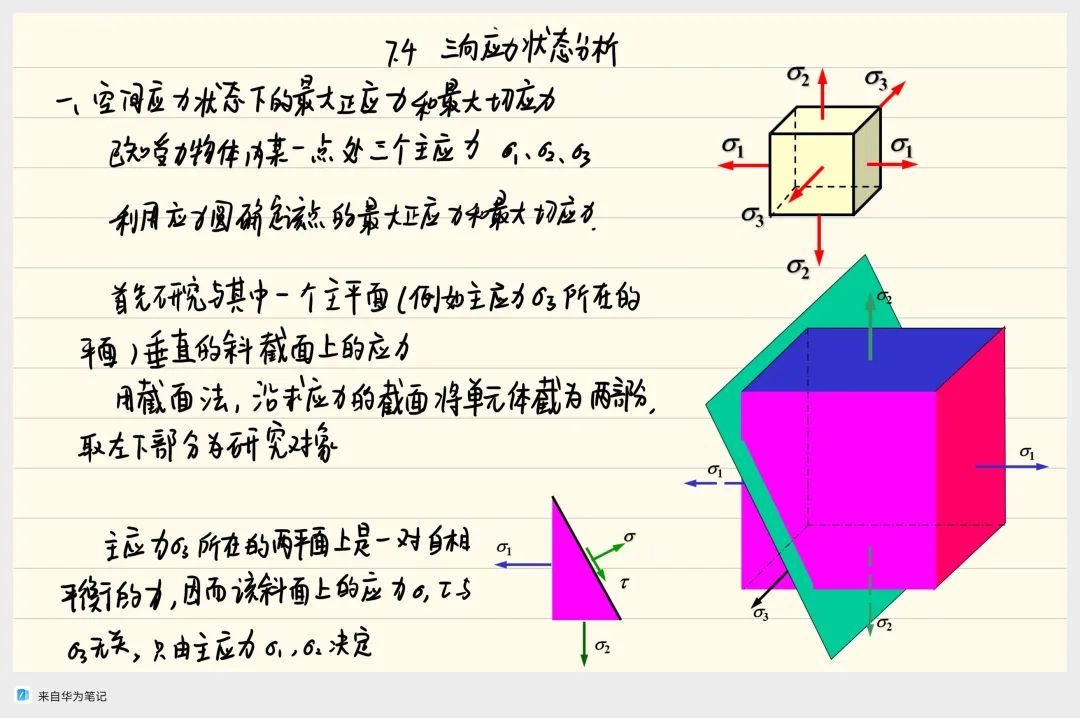 7.4 三向应力状态分析
一、空间应力状态下的最大正应力和最大切应力
已知受力物体内某一点处三个主应力 σ1、σ2、σ3
利用应力圆确定该点的最大正应力和最大切应力.
首先研究与其中一个主平面(例如主应力σ3所在的
平面)垂直的斜截面上的应力
用截面法,沿求应力的截面将单元体截为两部分,
取左下部分为研究对象
主应力σ3所在的两平面上是一对自相
平衡的力,因而该斜面上的应力σ,τ与
σ3无关,只由主应力σ1,σ2决定
σ2
σ3
σ1
σ1
σ3
σ2
σ2
σ1
σ1
σ3
σ2
σ1
σ
τ
σ2
来自华为笔记